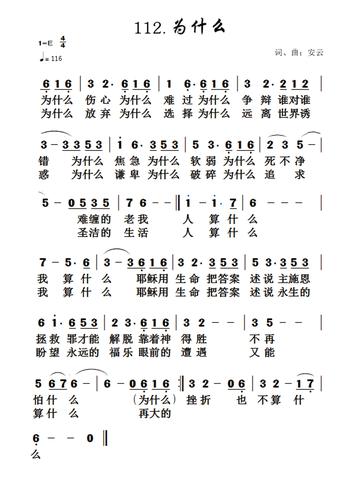 112.为什么
1=E 4/4
♩=116
词、曲：安云
6 1 6 | 3 2 · 6 1 6 | 1 6 · 6 1 6 | 3 2 · 6 1 6 |
为什么 伤心 为什么 难过 为什么 争辩 谁对谁
为什么 放弃 为什么 选择 为什么 远离 世界诱
3 – 3 3 5 3 | 1 6 · 3 3 5 3 | 1 6 · 3 5 3 | 2 3 5 – |
错 为什么 焦急 为什么 软弱 为什么 死不净
惑 为什么 谦卑 为什么 破碎 为什么 追求
5 – 0 5 3 5 | 7 6 – – | 1 – 1 · 7 | 6 – – – |
难缠的 老我 人 算什么
圣洁的 生活 人 算什么
7 – 5 · 6 | 3 – 3 6 1 6 | 3 2 · 6 1 6 | 5 3 5 6 5 3 |
我 算什么 耶稣用 生命 把答案 述说主施恩
我 算什么 耶稣用 生命 把答案 述说永生的
1 6 · 3 5 3 | 2 3 5 3 5 3 | 3 2 – – | 3 – 5 – |
拯救 罪才能 解脱靠着神 得胜 不再
盼望 永远的 福乐眼前的 遭遇 又能
5 6 7 6 – | 6 – 0 6 1 6 :| 3 2 – 0 6 | 3 2 – 1 7 |
怕什么 （为什么）挫折 也 不算什
算什么 再大的
6 – – 0 ‖
么